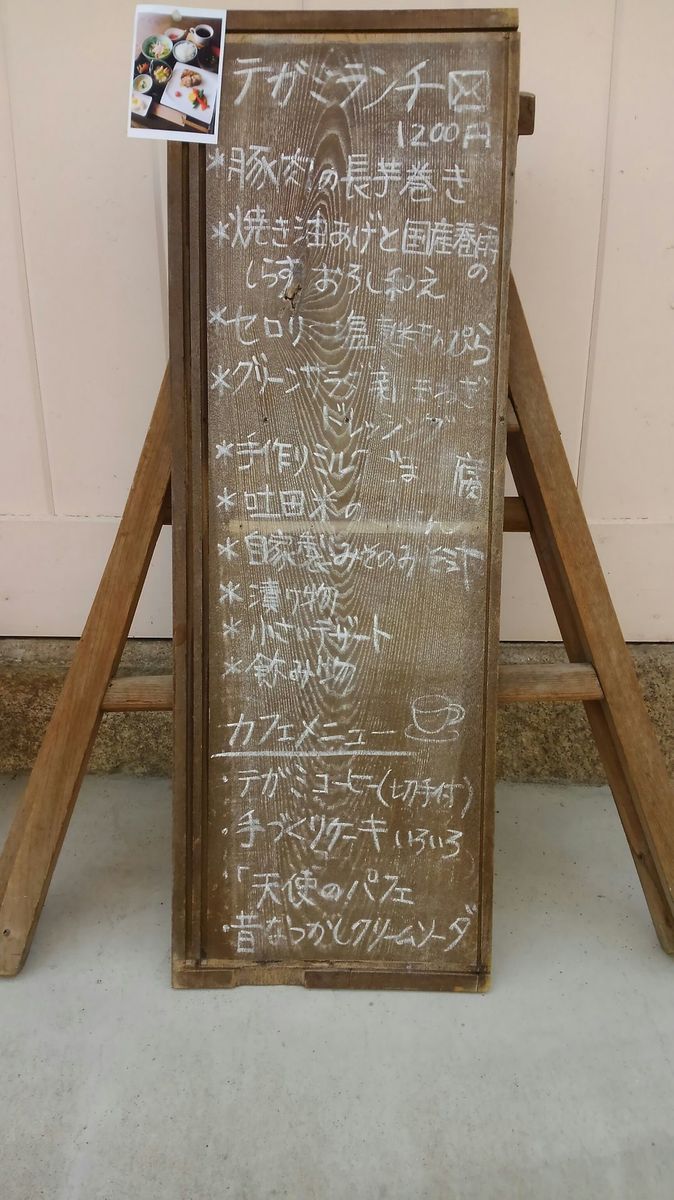 テガミランチ
1200円
*豚肉の長芋巻き
*焼き油あげと国産春雨の
しらすおろし和え
*セロリー塩きんぴら
*グリーンサラダ 新
ドレッシング
*手作りミルク ごま 腐
*吐田米の
*自家製みその
*漬け物
*小さいデザート
*飲み物
カフェメニュー
・テガミコーヒー(切手付)
・手づくりケーキいろいろ
・「天使のパフェ
・昔なつかしクリームソーダ